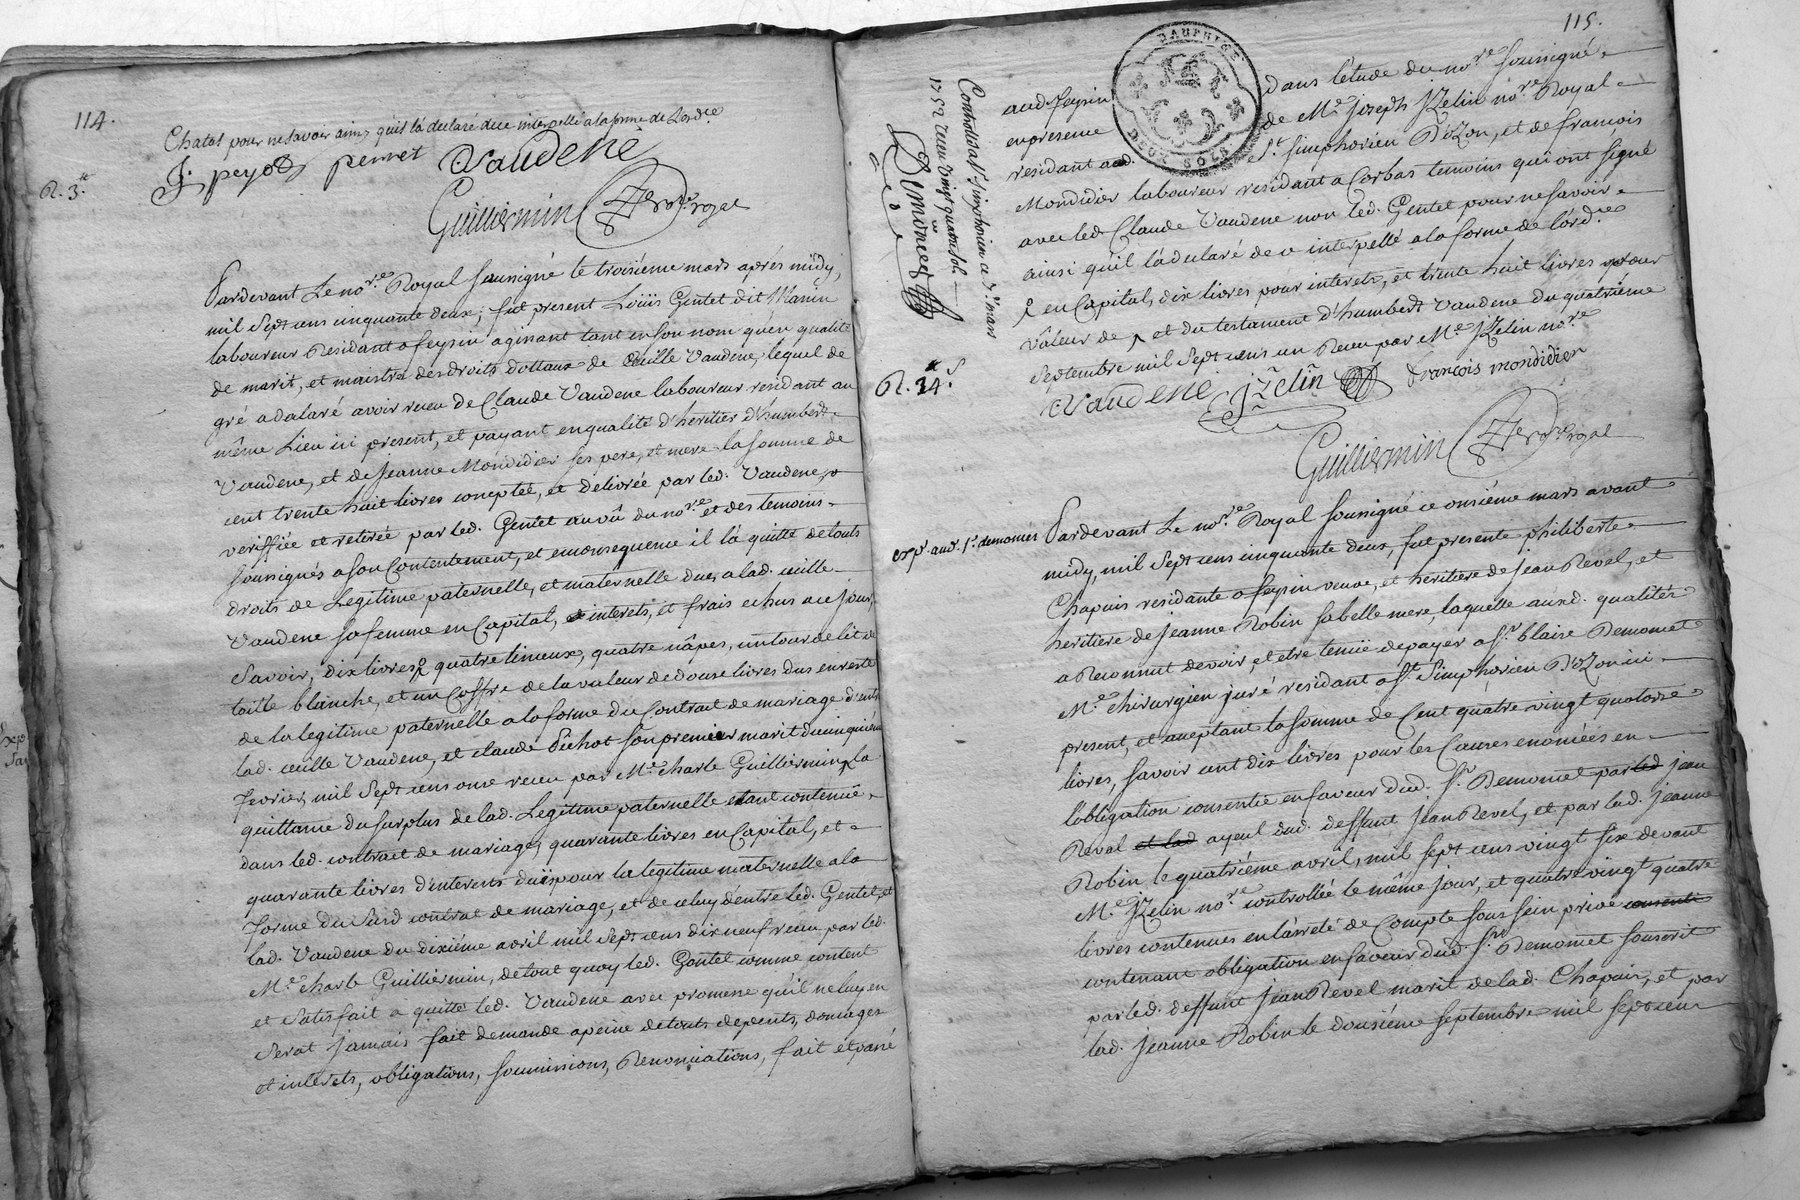 114.
Chatal pour ne savoir ainsy qu'il l'a déclaré due interpellé a la forme de l'ord.ce
J. peyot perret Vaudene
R. 3.tt
Guilliermin no.re royal
Pardevant Le no.re Royal soussigné le troisiéme mars apres midy,
mil Sept cens cinquante deux, fut present Loüis Gentet dit Manin
laboureur Residant a feysin agissant tant en son nom qu'en qualité
de marit, et maistre des droits dottaux de Vaudene, lequel de
gré a déclaré avoir receu de Claude Vaudene laboureur residant au
même Lieu ici present, et payant en qualité d'heritier d'humbert
Vaudene, et de Jeanne Mondidier ses pere, et mere la somme de
cent trente huit livres comptée, et délivrée par led. Vaudene,
veriffiée et retirée par led. Gentet au vû du no.re et des temoins
soussignés a son Contentement, et en consequence il l'a quitté de touts
droits de Legitime paternelle, et maternelle due a lad.
Vaudene sa femme en Capital, interets, et frais echus a ce jour,
Savoir, dix livres, quatre linceux, quatre nâpes, un tour de lit de
toille blanche, et un Coffre de la valeur de douse livres dus en reste
de la legitime paternelle a la forme du Contrait de mariage d'entre
lad. Vaudene, et claude Pichot son premier marit du cinquiéme
fevrier, mil Sept cens onse receu par M.e Charle Guilliermin, la
quittance du surplus de lad. Legitime paternelle etant contenüe
dans led. contrait de mariage, quarante livres en Capital, et
quarante livres d'interests düs pour la legitime maternelle a la
forme du Susd contrat de mariage, et de celuy d'entre led. Gentet, et
lad. Vaudene du dixiéme avril mil Sept cens dix neuf receu par led.
M.e Charle Guilliermin, de tout quoy led. Gentet comme content
et Satisfait a quitté led. Vaudene avec promesse qu'il ne luy en
serat jamais fait demande a peine de touts depents, domages
et interets, obligations, soumissions, Renonciations, fait et passé
115.
DAUPHINÉ
DEUX SOLS
aud. feysin dans l'etude du no.re soussigné
en presence de M.e Joseph JZelin no.re Royal
residant aud. S.t simphorien D'oZon, et de françois
Mondidier laboureur residant a Corbas temoins qui ont signé
avec led Claude Vaudene non led. Gentet pour ne savoir
ainsi qu'il l'a declaré de ce interpellé a la forme de l'ord.ce
en Capital, dix livres pour interets, et trente huit livres pour
vâleur de et du testament d'humbert Vaudene du quatriéme
Septembre mil Sept cens un Receu par M.e JZelin no.re
Controllé a S.t Simphorien ce 7.e mars
1752 receu vingt quatre sols
Demonet
Vaudene JZelin françois mondidier
R. 34.s
Guilliermin no.re royal
exp.é aud. s.r demomet
Pardevant Le no.re Royal soussigné ce onsiéme mars avant
midy, mil Sept cens cinquante deux, fut presente philiberte
Chapuis residante a feysin veuve, et héritiere de Jean Revel, et
heritiere de Jeanne Robin sa belle mere, laquelle ausd. qualités
a Reconnut devoir, et etre tenüe de payer a S.r blaise Demomet
M.e Chirurgien juré residant a S.t Simphorien D'oZon ici
present, et aceptant la somme de Cent quatre vingt quatorze
livres, savoir cent dix livres pour les Causes enoncées en
l'obligation consentie en faveur dud. S.r Demomet par led jean
Revel et lad ayeul dud. deffunt Jean Revel, et par lad. Jeanne
Robin le quatriéme avril, mil sept cens vingt six devant
M.e JZelin no.re controllée le même jour, et quatre vingt quatre
livres contenues en l'arrété de Compte sous sein privé consentie
contenant obligation en faveur dud. S.r Demomet souscrit
par led. deffunt Jean Revel marit de lad. Chapuis, et par
lad. Jeanne Robin le dousiéme septembre mil sept cens